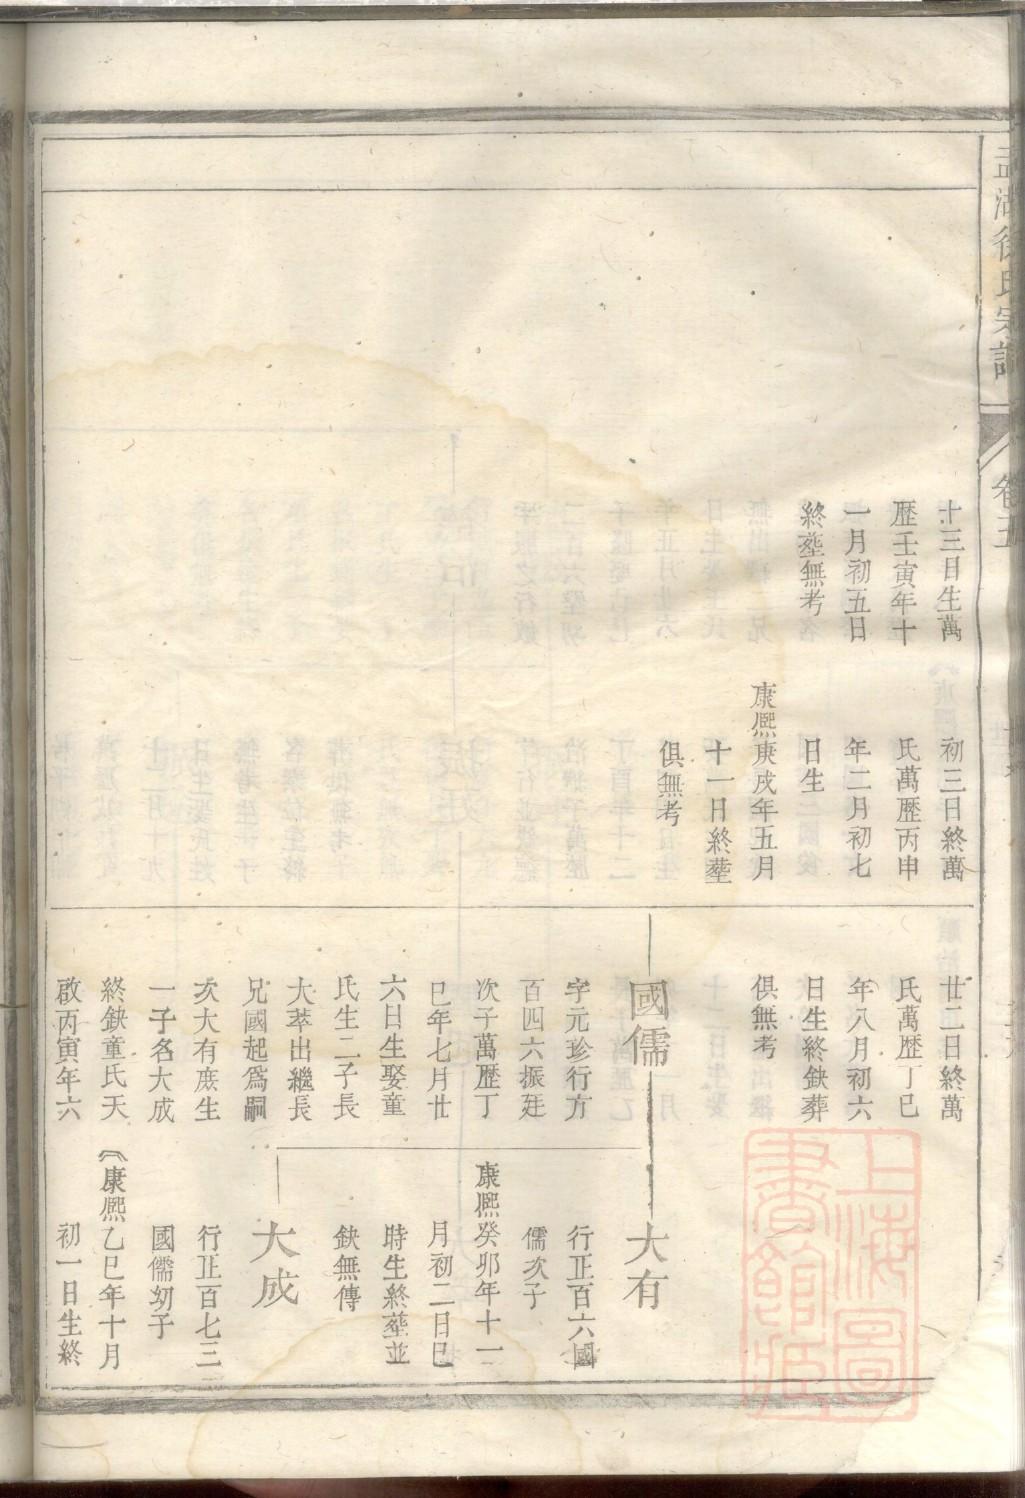 孟湖徐氏宗譜
卷五
十三日生萬
歷壬寅年十
一月初五日
終塟無考
初三日終萬
氏萬歷丙申
年二月初七
日生
康熙庚戌年五月
十一日終塟
俱無考
廿二日終萬
氏萬歷丁巳
年八月初六
日生終鈌葬
俱無考
國儒
字元珍行方
百四六振廷
次子萬歷丁
巳年七月廿
六日生娶童
氏生二子長
大萃出繼長
兄國起爲嗣
次大有庶生
一子名大成
終鈌童氏天
啟丙寅年六
大有
行正百六國
儒次子
康熙癸卯年十一
月初二日巳
時生終塟並
鈌無傳
大成
行正百七三
國儒㓜子
康熙乙巳年十月
初一日生終
上海圖書館藏